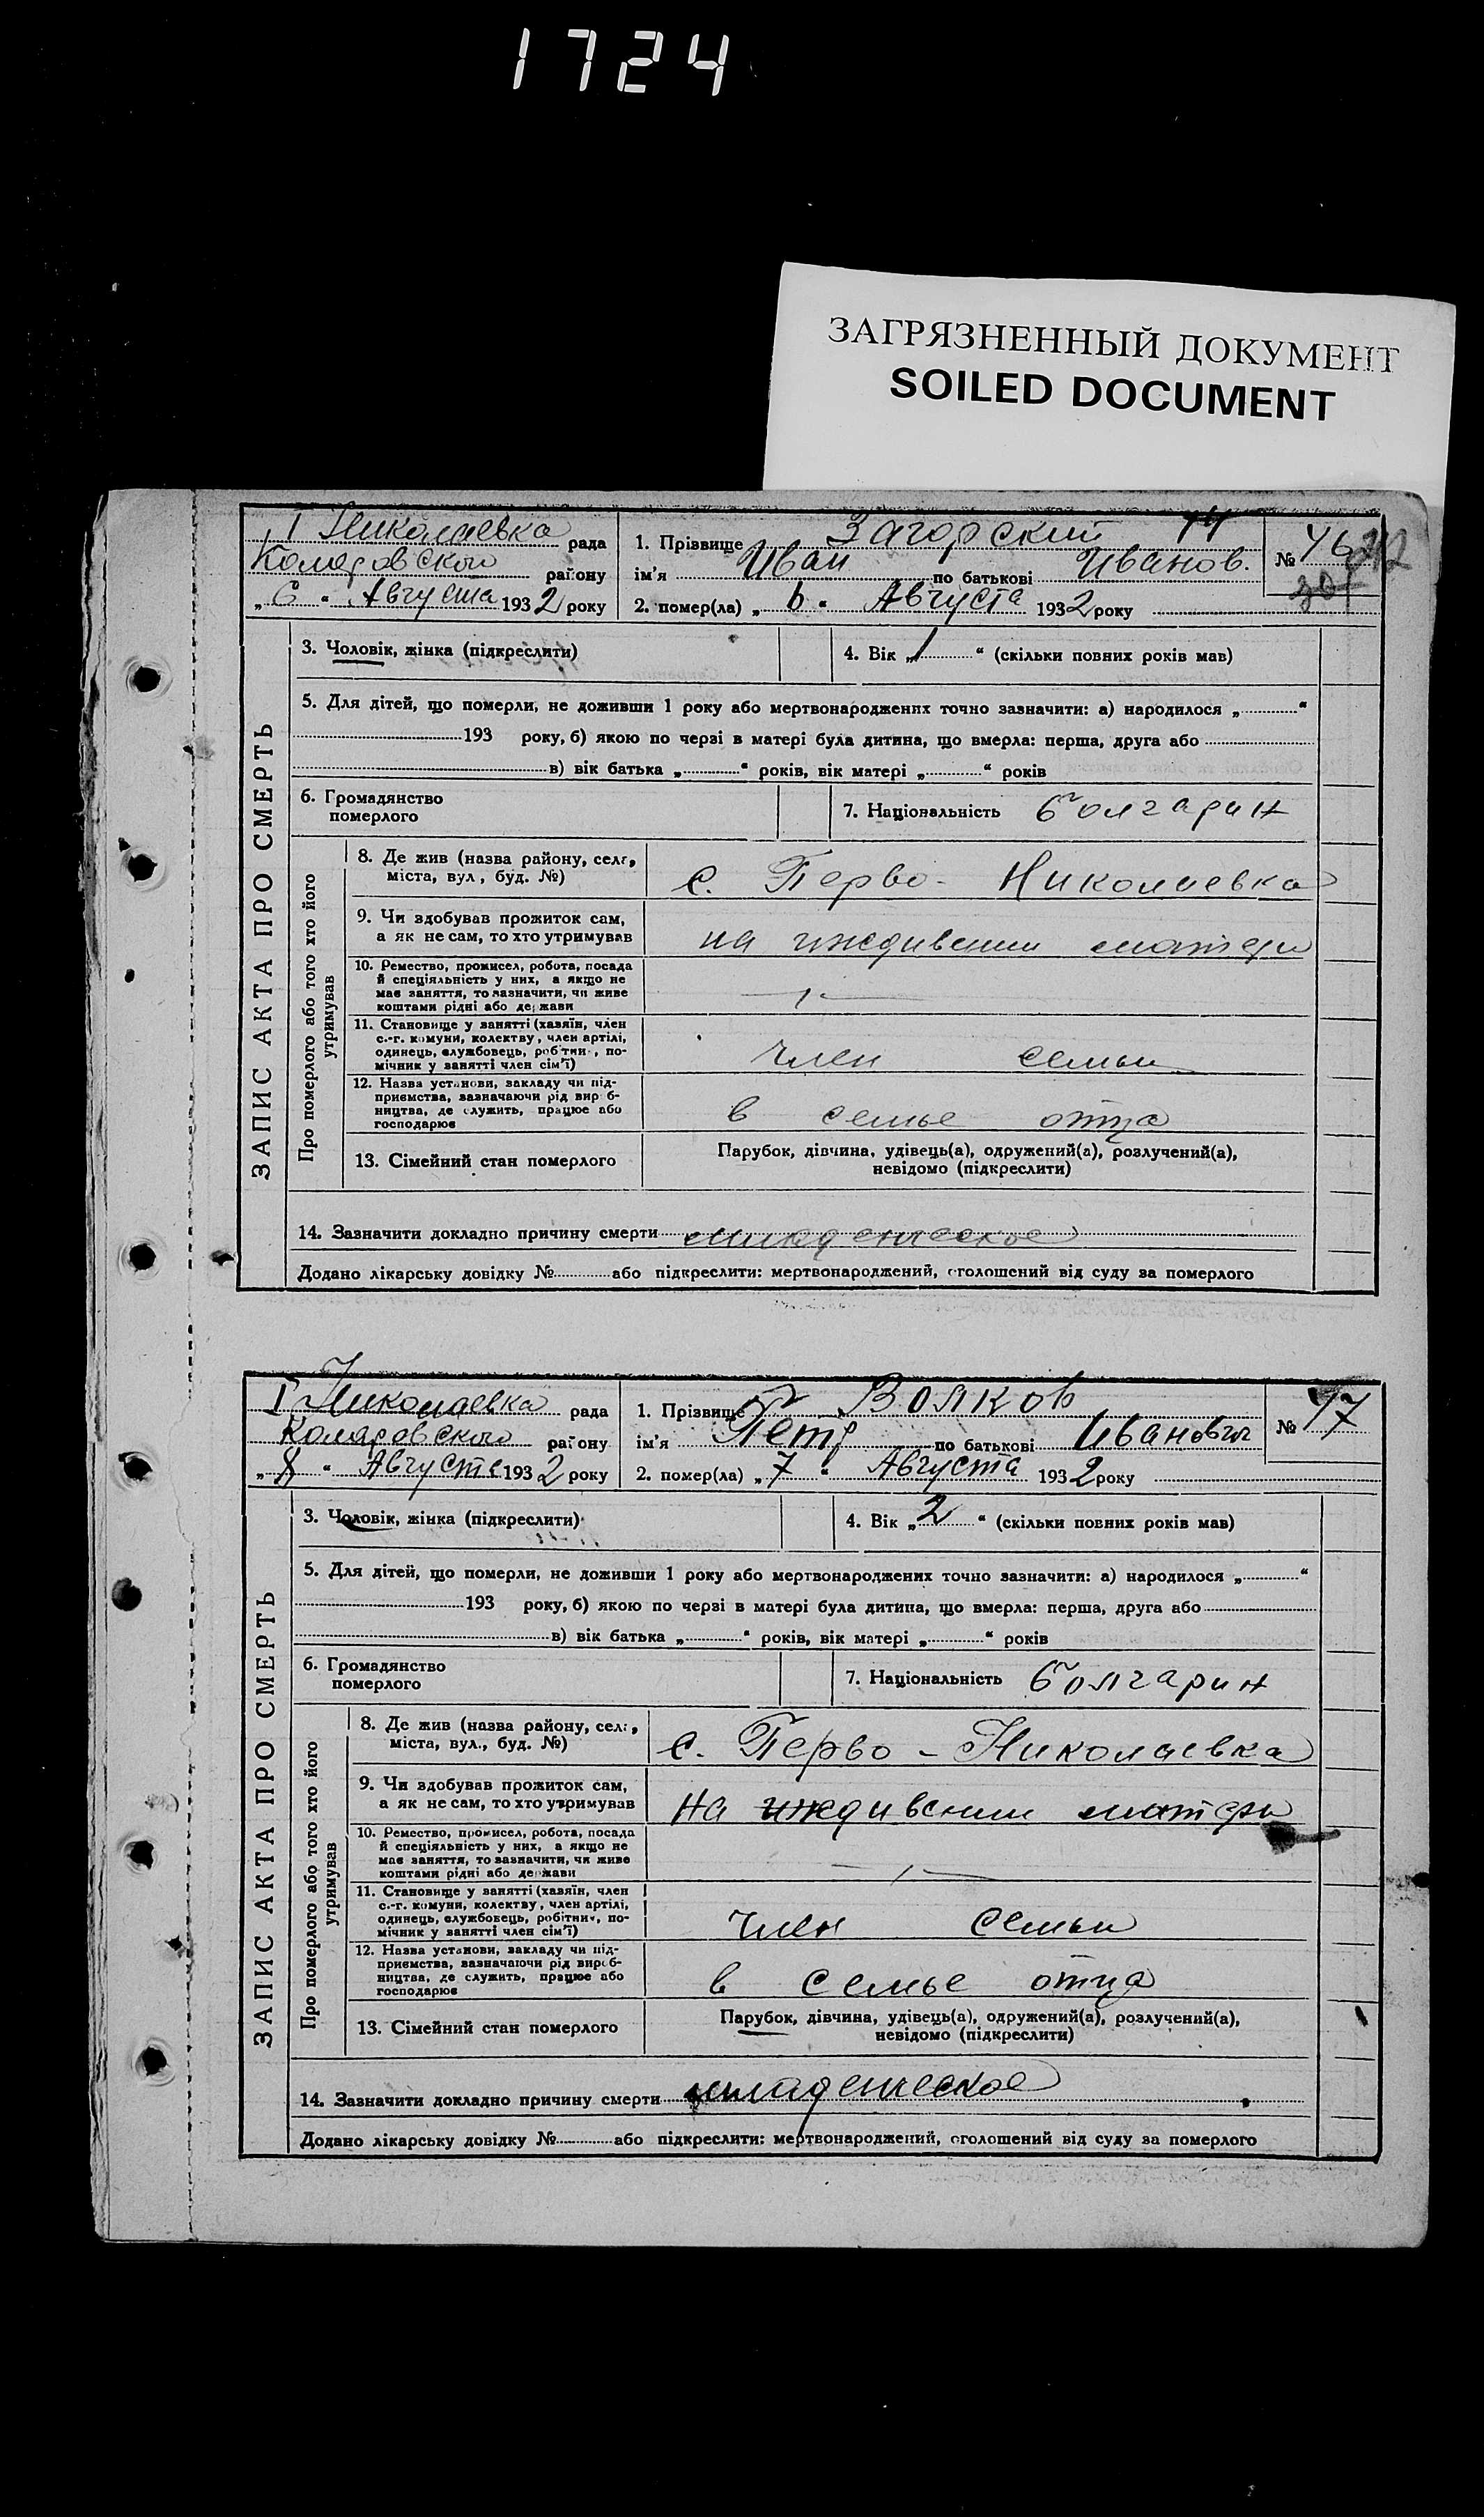 1724
ЗАГРЯЗНЕННЫЙ ДОКУМЕНТ
SOILED DOCUMENT
ЗАПИС АКТА ПРО СМЕРТЬ
І Николаевка рада
Комаровского району
„6“ Августа 1932 року
1. Прізвище Загорский 44
ім'я Иван по батькові Иванов.
№ 46
2. помер(ла) „6“ Августа 1932 року
3. Чоловік, жінка (підкреслити)
4. Вік „1“ (скільки повних років мав)
5. Для дітей, що померли, не доживши 1 року або мертвонароджених точно зазначити: а) народилося „ “
193 року, б) якою по черзі в матері була дитина, що вмерла: перша, друга або
в) вік батька „ “ років, вік матері „ “ років
6. Громадянство
померлого
7. Національність болгарин
Про померлого або того хто його
утримував
8. Де жив (назва району, села,
міста, вул, буд. №)
с. Перво-Николаевка
9. Чи здобував прожиток сам,
а як не сам, то хто утримував
на иждивении матери
10. Ремество, промисел, робота, посада
й спеціяльність у них, а якщо не
має заняття, то зазначити, чи живе
коштами рідні або держави
11. Становище у занятті (хазяїн, член
с.-г. комуни, колектву, член артілі,
одинець, службовець, робітник, по-
мічник у занятті член сім'ї)
член семьи
12. Назва установи, закладу чи під-
приємства, зазначаючи рід вироб-
ництва, де служить, працює або
господарює
в семье отца
13. Сімейний стан померлого
Парубок, дівчина, удівець(а), одружений(а), розлучений(а),
невідомо (підкреслити)
14. Зазначити докладно причину смерти младенческое
Додано лікарську довідку № або підкреслити: мертвонароджений, оголошений від суду за померлого
ЗАПИС АКТА ПРО СМЕРТЬ
І Николаевка рада
Комаровского району
„8“ Августа 1932 року
1. Прізвище Волков
ім'я Петр по батькові Иванович
№ 47
2. помер(ла) „7“ Августа 1932 року
3. Чоловік, жінка (підкреслити)
4. Вік „2“ (скільки повних років мав)
5. Для дітей, що померли, не доживши 1 року або мертвонароджених точно зазначити: а) народилося „ “
193 року, б) якою по черзі в матері була дитина, що вмерла: перша, друга або
в) вік батька „ “ років, вік матері „ “ років
6. Громадянство
померлого
7. Національність болгарин
Про померлого або того хто його
утримував
8. Де жив (назва району, села,
міста, вул., буд. №)
с. Перво-Николаевка
9. Чи здобував прожиток сам,
а як не сам, то хто утримував
на иждивении матери
10. Ремество, промисел, робота, посада
й спеціяльність у них, а якщо не
має заняття, то зазначити, чи живе
коштами рідні або держави
11. Становище у занятті (хазяїн, член
с.-г. комуни, колектву, член артілі,
одинець, службовець, робітник, по-
мічник у занятті член сім'ї)
член семьи
12. Назва установи, закладу чи під-
приємства, зазначаючи рід вироб-
ництва, де служить, працює або
господарює
в семье отца
13. Сімейний стан померлого
Парубок, дівчина, удівець(а), одружений(а), розлучений(а),
невідомо (підкреслити)
14. Зазначити докладно причину смерти младенческое
Додано лікарську довідку № або підкреслити: мертвонароджений, оголошений від суду за померлого